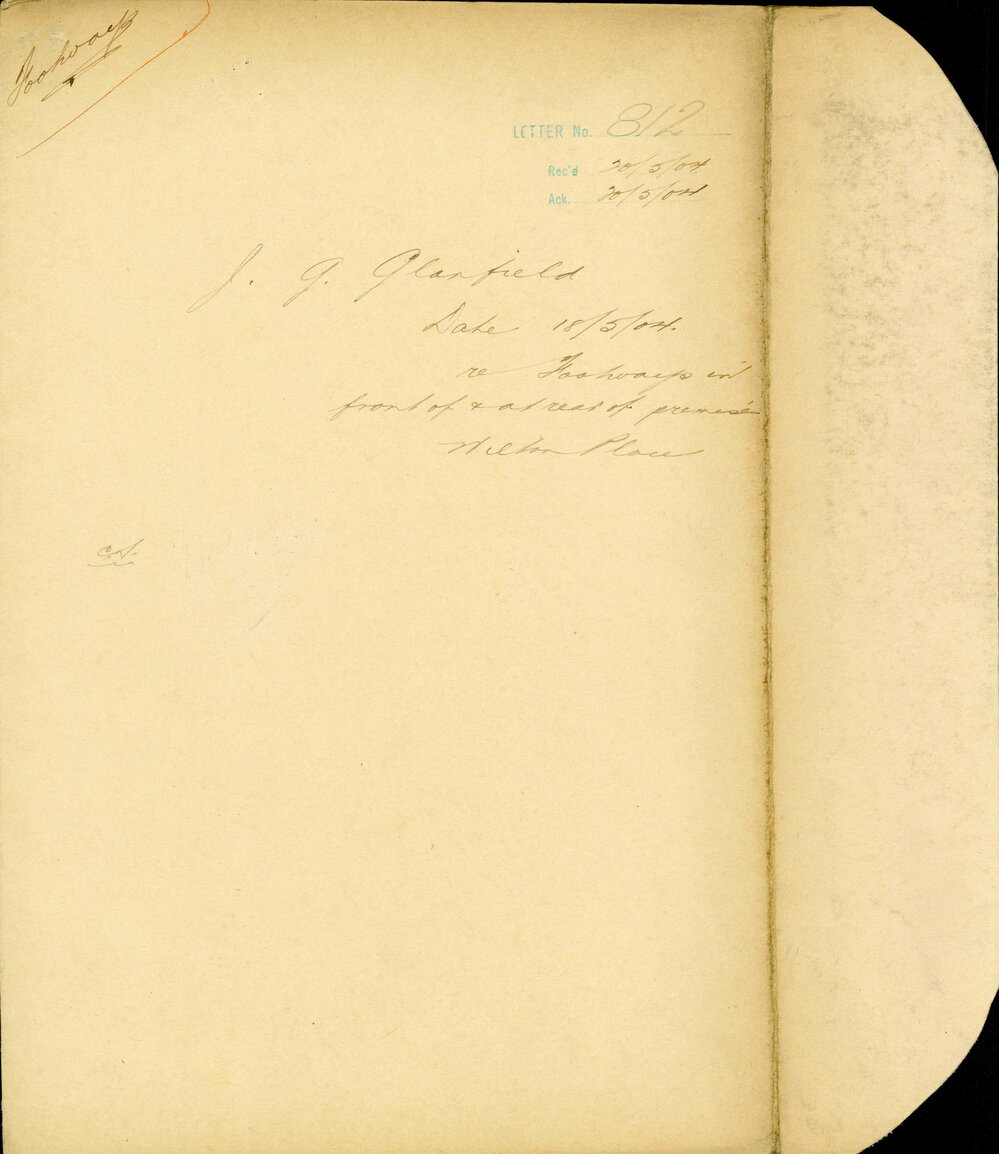 Footways
LETTER No. 812
Rec'd 30/5/04
Ack. 30/5/04
J. G. Glanfield
Date 18/5/04.
re Footways in
front of & at rear of premises
Wilton Place